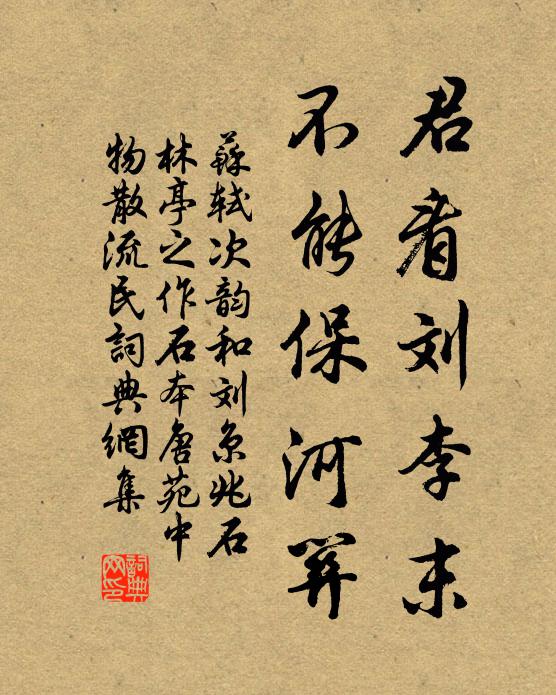 君看刘李末
不能保河關
蘇軾次韵和刘京兆石
林亭之作石本唐苑中
物散流民詞典網集
詞典網印